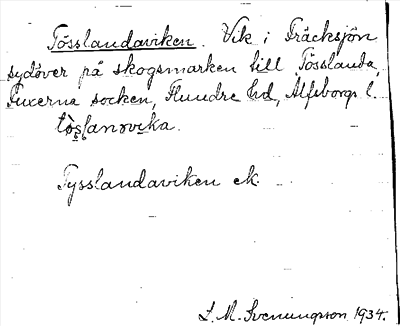 Tösslandaviken. Vik i Träcksjön
sydöver på skogsmarken till Tösslanda,
Fuxerna socken, Flundre hd, Älfsborgs l.
Tysslandaviken ek.
S. M. Svenungsson 1934.